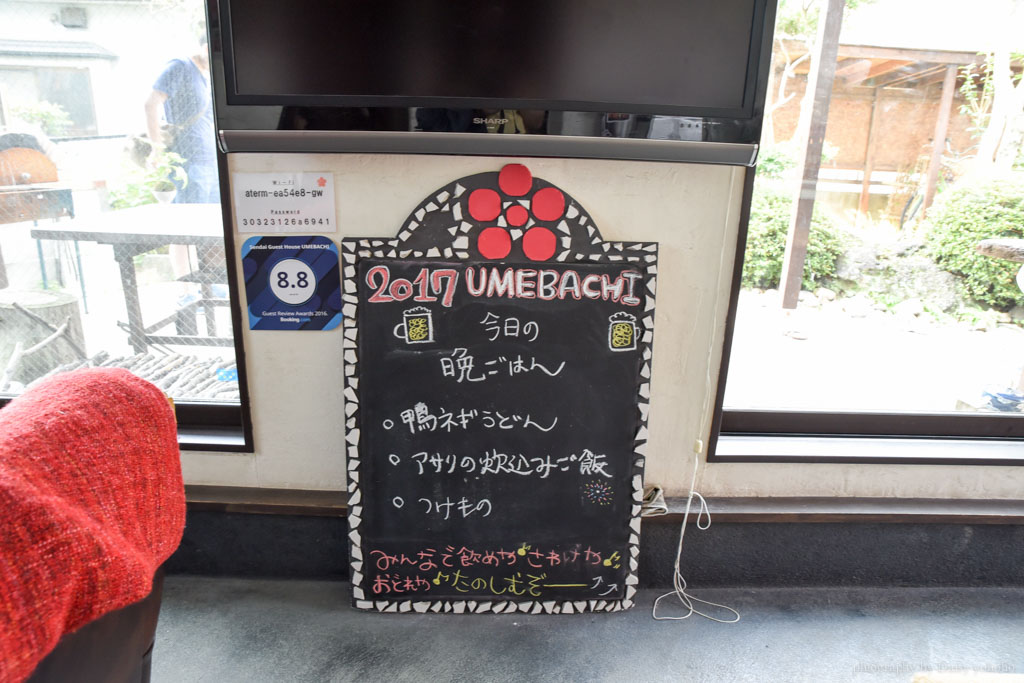 SHARP
aterm-ea54e8-gw
Password
30323126a6941
Sendai Guest House UMEBACHI
8.8
Guest Review Awards 2016
Booking.com
2017 UMEBACHI
今日の
晩ごはん
○ 鴨ネギうどん
○ アサリの炊込みご飯
○ つけもの
みんなで飲めや♪さわげや♪
おどれや♪たのしむぞー